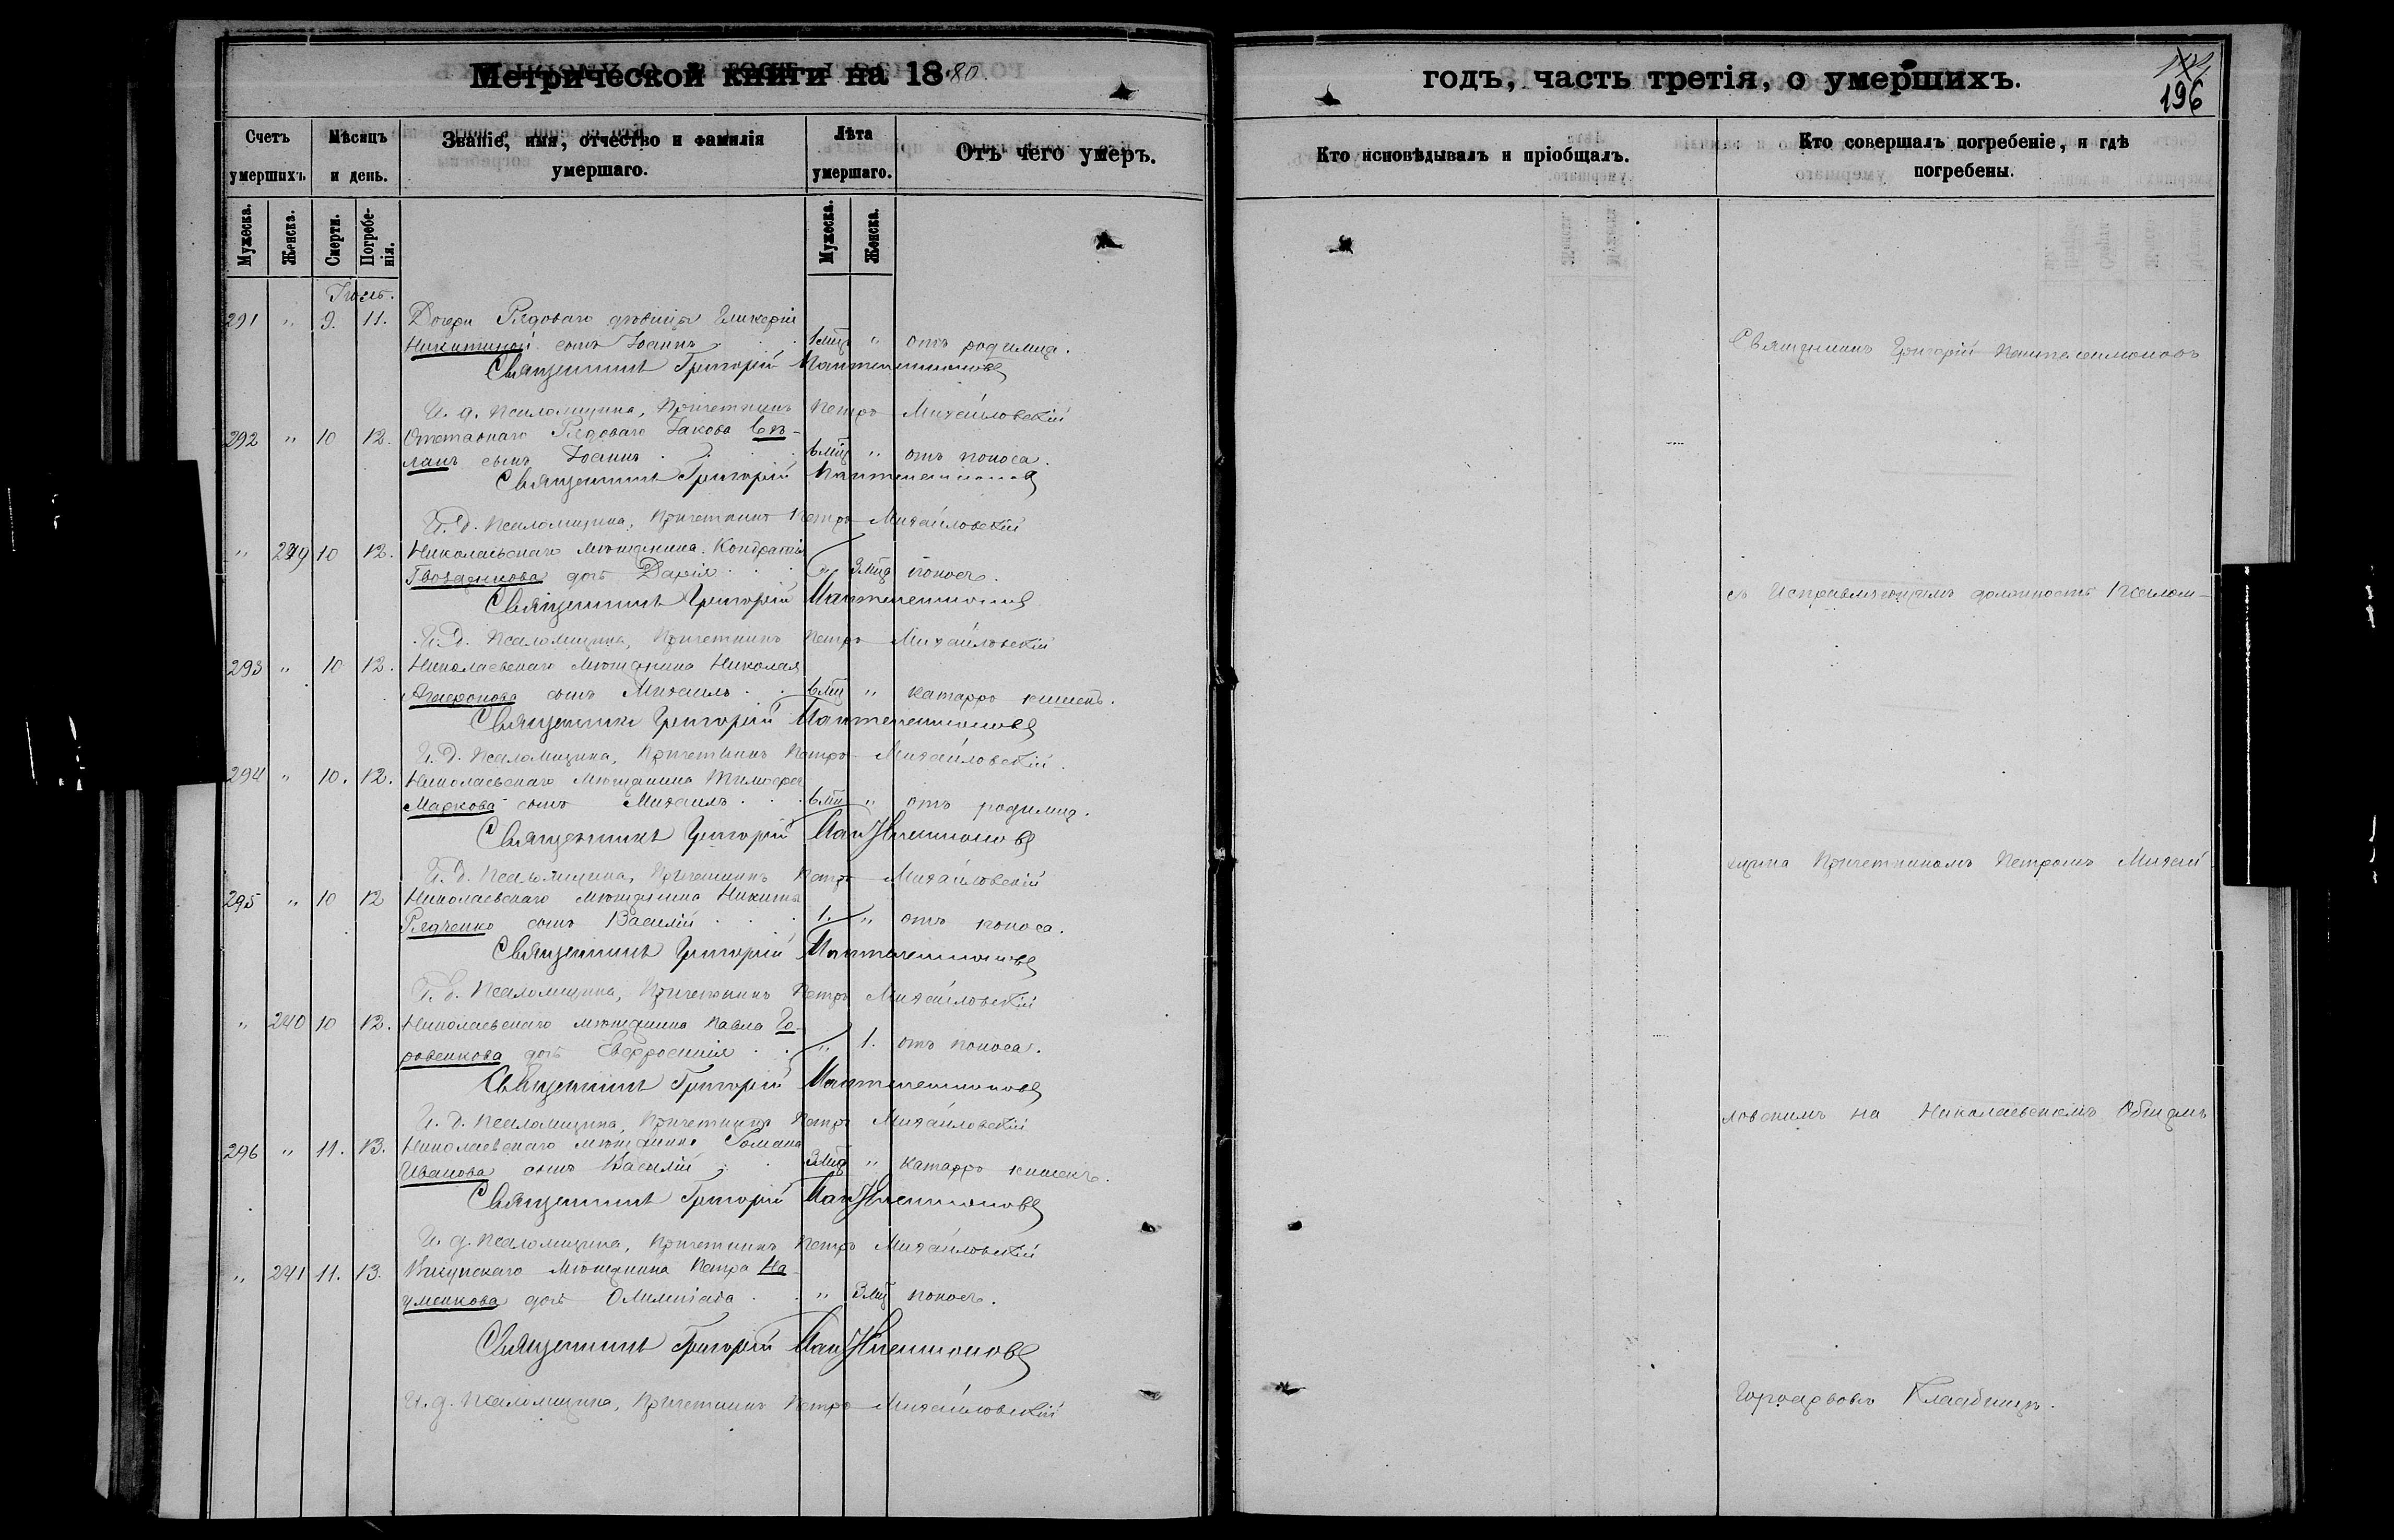 Метрической книги на 1880.
Счетъ умершихъ.
Мѣсяцъ и день.
Званіе, имя, отчество и фамилія умершаго.
Лѣта умершаго.
Отъ чего умеръ.
Мужеска.
Женска.
Смерти.
Погребенія.
Мужеска.
Женска.
291 " 9. 11. Дочери Рядоваго дѣвицы Гликеріи
Никитиной сынъ Іоаннъ 1 мць " отъ родимца.
Священникъ Григорій Пантелеимоновъ
И. д. Псаломщика, Причетникъ Петръ Михайловскій
292 " 10 12. Отставнаго Рядоваго Іакова
сынъ Іоаннъ 6 мць " отъ поноса.
Священникъ Григорій Пантелеимоновъ
И. Д. Псаломщика, Причетникъ Петръ Михайловскій
" 239 10 12. Николаевскаго мѣщанина Кондратія
Гвоздикова дочь Дарія " 3 мца поносъ.
Священникъ Григорій Пантелеимоновъ
И. Д. Псаломщика, Причетникъ Петръ Михайловскій
293 " 10 12. Николаевскаго Мѣщанина Николая
Агафонова сынъ Михаилъ 6 мц " катарръ кишекъ.
Священникъ Григорій Пантелеимоновъ
И. Д. Псаломщика, Причетникъ Петръ Михайловскій.
294 " 10. 12. Николаевскаго Мѣщанина Тимофея
Маркова сынъ Михаилъ 6 мц " отъ родимца.
Священникъ Григорій Пантелеимоновъ
И. Д. Псаломщика, Причетникъ Петръ Михайловскій
295 " 10 12 Николаевскаго мѣщанина Никиты
Рядченко сынъ Василій 1. " отъ поноса.
Священникъ Григорій Пантелеимоновъ
И. д. Псаломщика, Причетникъ Петръ Михайловскій
" 240 10 12. Николаевскаго мѣщанина Павла Го-
ровенкова дочь Евфросинія " 1. отъ поноса.
Священникъ Григорій Пантелеимоновъ
И. д. Псаломщика, Причетникъ Петръ Михайловскій
296 " 11. 13. Николаевскаго мѣщанина Романа
Иванова сынъ Василій 3 мца " катарръ кишекъ.
Священникъ Григорій Пантелеимоновъ
И. д. Псаломщика, Причетникъ Петръ Михайловскій
" 241 11. 13. мѣщанина Петра На-
уменкова дочь Олимпіада " 3 мц поносъ.
Священникъ Григорій Пантелеимоновъ
И. д. Псаломщика, Причетникъ Петръ Михайловскій
годъ, часть третія, о умершихъ.
196
Кто исповѣдывалъ и пріобщалъ.
Кто совершалъ погребеніе, и гдѣ погребены.
Священникъ Григорій Пантелеимоновъ
съ Исправляющимъ должность Псалом-
щика Причетникомъ Петромъ Михай
ловскимъ на Николаевскомъ Общемъ
Городовомъ Кладбищѣ.